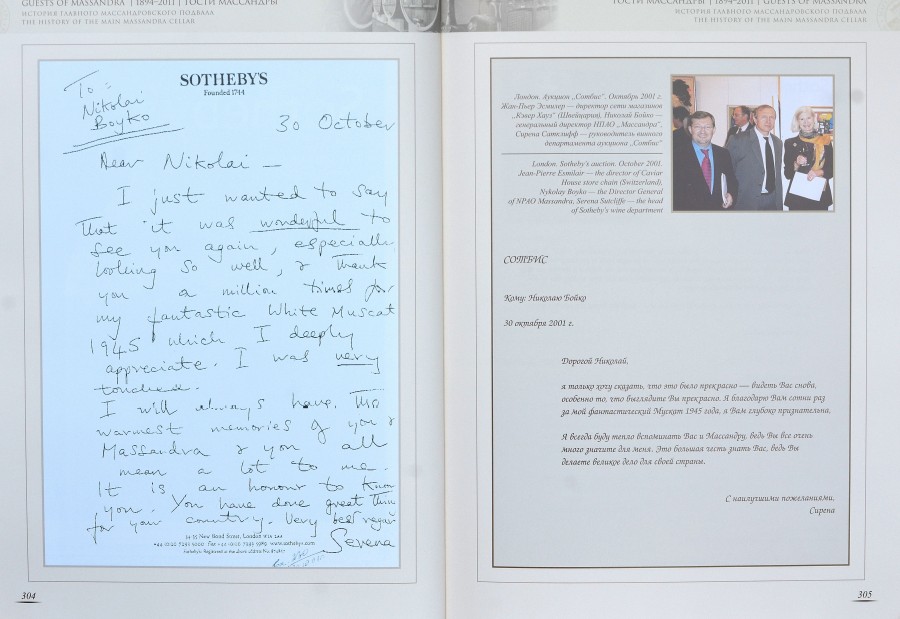 GUESTS OF MASSANDRA | 1894-2011 | ГОСТИ МАССАНДРЫ
ИСТОРИЯ ГЛАВНОГО МАССАНДРОВСКОГО ПОДВАЛА
THE HISTORY OF THE MAIN MASSANDRA CELLAR
To:
Nikolai
Boyko
SOTHEBY'S
Founded 1744
30 October
Dear Nikolai –
I just wanted to say
that it was wonderful to
see you again, especially
looking so well, & thank
you a million times for
my fantastic White Muscat
1945 which I deeply
appreciate. I was very
touched.
I will always have the
warmest memories of you &
Massandra & you all
mean a lot to me.
It is an honour to know
you. You have done great thin
for your country. Very best regar
Serena
34-35 New Bond Street, London W1A 2AA
+44 (0)20 7293 5000 Fax +44 (0)20 7293 5989 www.sothebys.com
304
ГОСТИ МАССАНДРЫ | 1894-2011 | GUESTS OF MASSANDRA
ИСТОРИЯ ГЛАВНОГО МАССАНДРОВСКОГО ПОДВАЛА
THE HISTORY OF THE MAIN MASSANDRA CELLAR
Лондон. Аукцион „Сотбис“, Октябрь 2001 г.
Жан-Пьер Эсмилер — директор сети магазинов
„Кэвер Хауз“ (Швейцария), Николай Бойко —
генеральный директор НПАО „Массандра“,
Сирена Сатклифф — руководитель винного
департамента аукциона „Сотбис“
London. Sotheby's auction. October 2001.
Jean-Pierre Esmilair — the director of Caviar
House store chain (Switzerland),
Nykolay Boyko — the Director General
of NPAO Massandra, Serena Sutcliffe — the head
of Sotheby's wine department
СОТБИС
Кому: Николаю Бойко
30 октября 2001 г.
Дорогой Николай,
я только хочу сказать, что это было прекрасно — видеть Вас снова,
особенно то, что выглядите Вы прекрасно. Я благодарю Вам сотни раз
за мой фантастический Мускат 1945 года, а Вам глубоко признательна.
Я всегда буду тепло вспоминать Вас и Массандру, ведь Вы все очень
много значите для меня. Это большая честь знать Вас, ведь Вы
делаете великое дело для своей страны.
С наилучшими пожеланиями,
Сирена
305